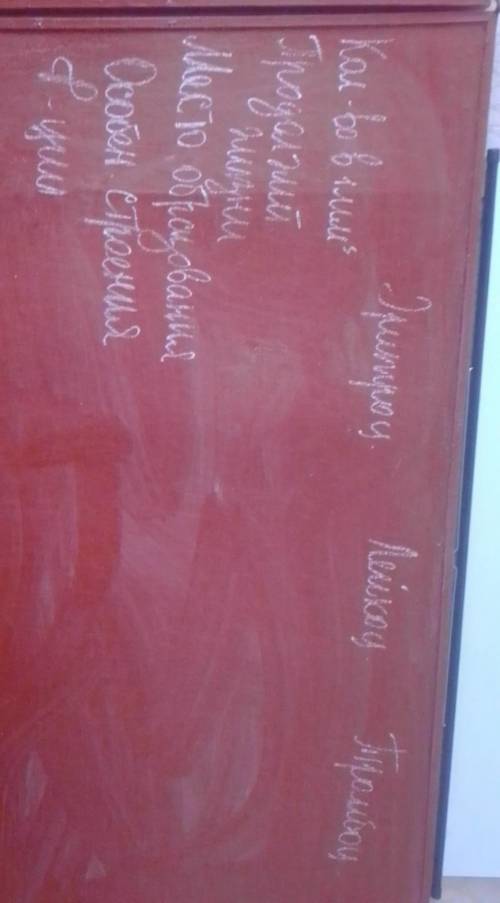 Эритроц. Лейкоц. Тромбоц.
Кол-во в 1 мм³
Продолжит
жизни
Место образования
Особен. строения
Ф-ции